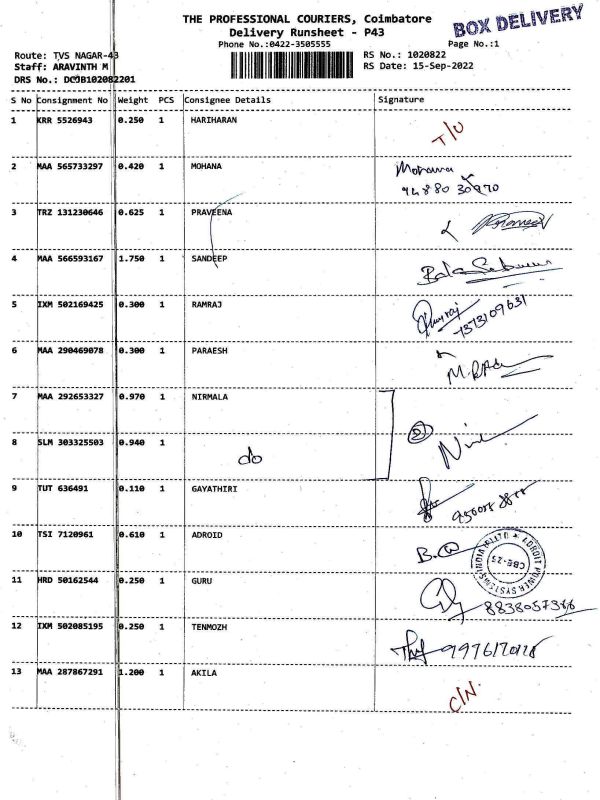 THE PROFESSIONAL COURIERS, Coimbatore
BOX DELIVERY
Delivery Runsheet - P43
Phone No.:0422-3505555
Page No.:1
Route: TVS NAGAR-43
RS No.: 1020822
Staff: ARAVINTH M
RS Date: 15-Sep-2022
DRS No.: DCJB102082201
S No Consignment No Weight PCS Consignee Details Signature
1 KRR 5526943 0.250 1 HARIHARAN T/U
2 MAA 565733297 0.420 1 MOHANA Mohana
94880 30970
3 TRZ 131230646 0.625 1 PRAVEENA
4 MAA 566593167 1.750 1 SANDEEP
5 IXM 502169425 0.300 1 RAMRAJ
7373109631
6 MAA 290469078 0.300 1 PARAESH
7 MAA 292653327 0.970 1 NIRMALA
8 SLM 303325503 0.940 1 do
9 TUT 636491 0.110 1 GAYATHIRI
10 TSI 7120961 0.610 1 ADROID
ADROIT POWER SYSTEMS INDIA (P) LTD
CBE-25
11 HRD 50162544 0.250 1 GURU
12 IXM 502085195 0.250 1 TENMOZH
13 MAA 287867291 1.200 1 AKILA C/N.